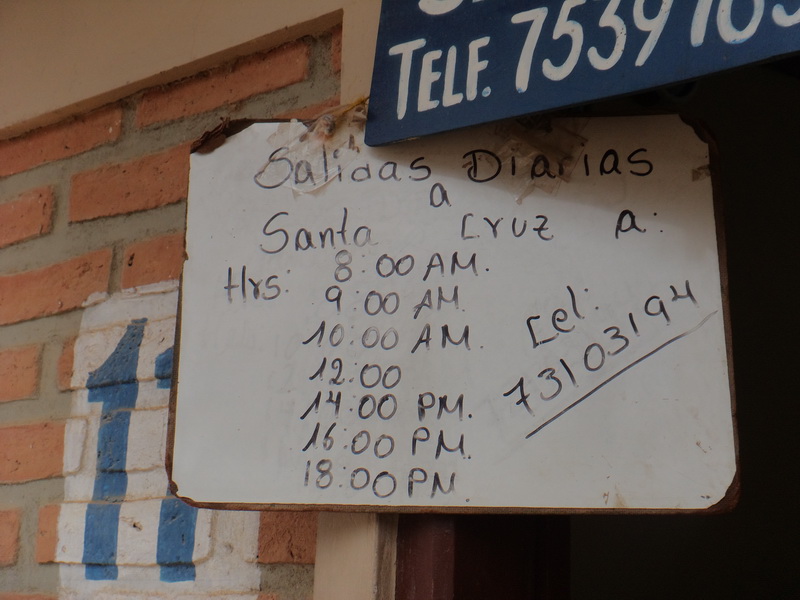 TELF. 7539703
Salidas Diarias
a
Santa Cruz A:
Hrs: 8:00 AM.
9:00 AM.
10:00 AM.
12:00
14:00 PM.
16:00 PM.
18:00 PM.
Cel:
73103194
11